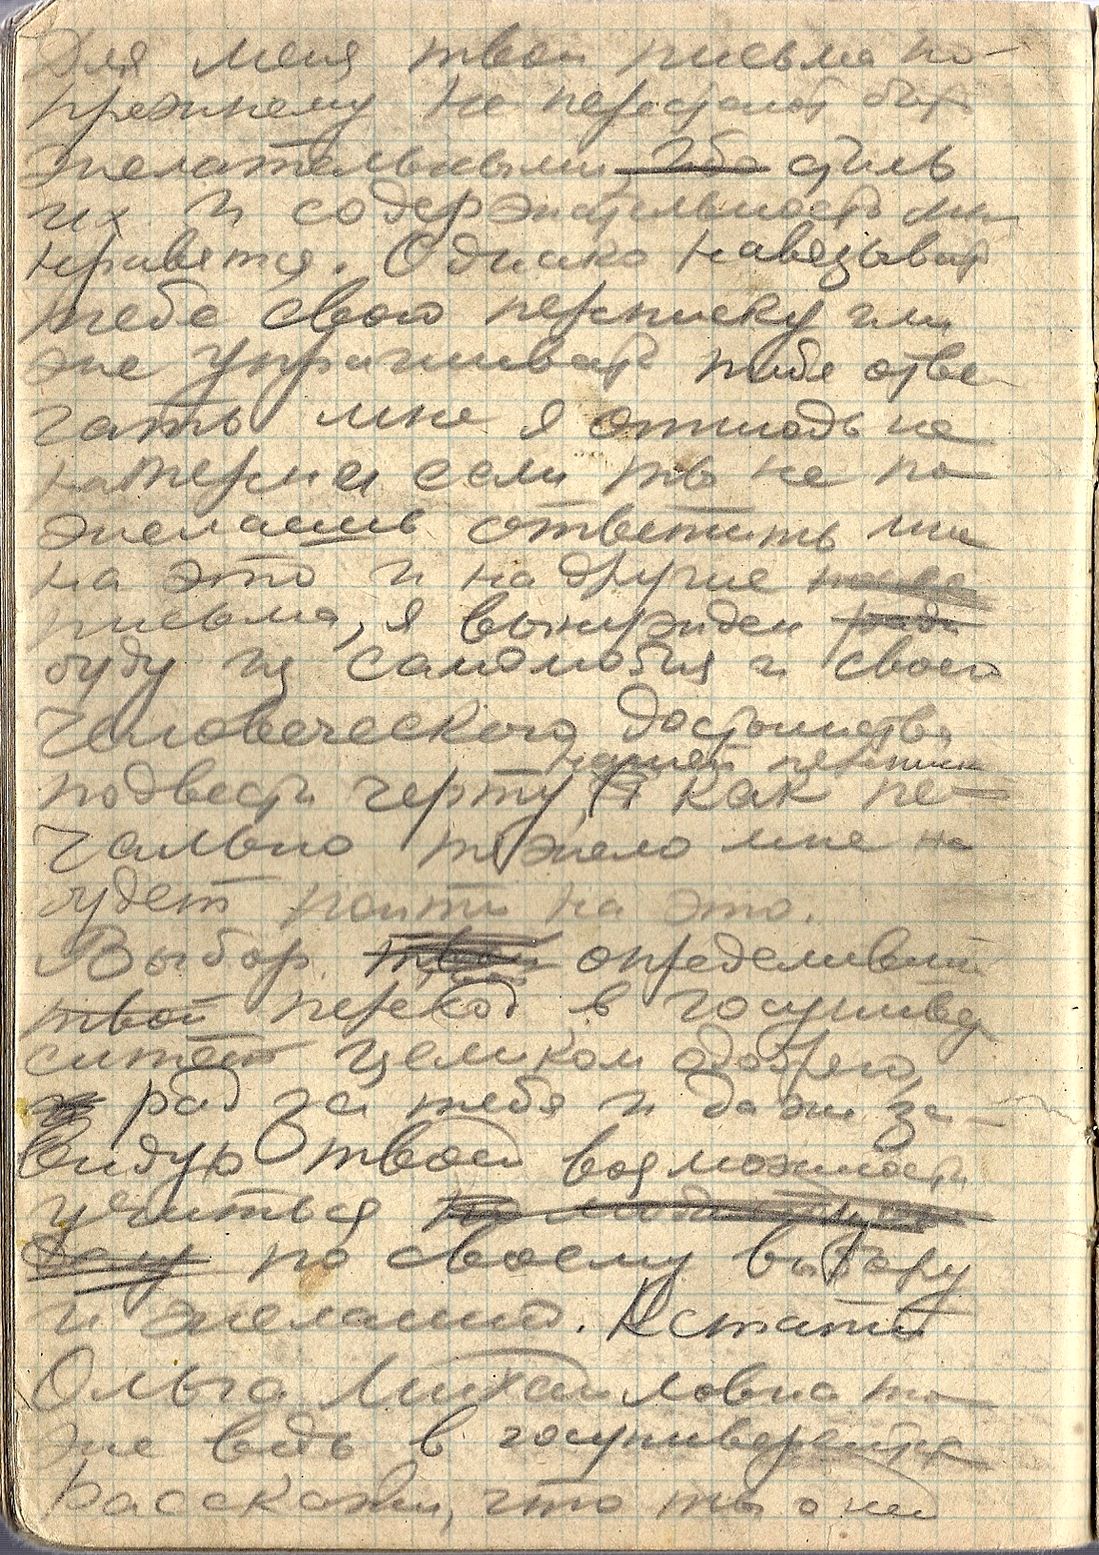 Для меня твои письма по-
прежнему не перестают быть
желательными, ибо стиль
их и содержательность мне
нравятся. Однако навязывать
тебе свою переписку или
же упрашивать тебя отве-
чать мне я отнюдь не
намерен и если ты не по-
желаешь ответить мне
на это и на другие
письма, я вынужден ради
буду из самолюбия и своего
человеческого достоинства
нашей переписки
подвести черту, как пе-
чально тяжело мне не
будет пойти на это.
Выбор твой определивший
твой переход в госунивер
ситет целиком одобряю,
и рад за тебя и даже за-
видую твоей возможности
учиться
по своему выбору
и желанию. Кстати
Ольга Михайловна то
же ведь в госуниверситете
Расскажи, что ты о ней